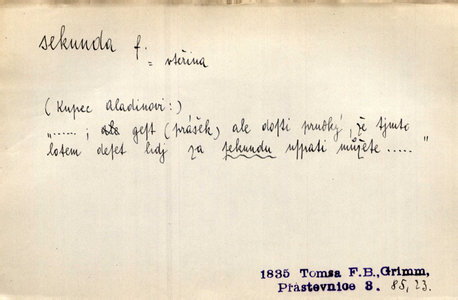 sekunda f.
= vteřina
(Kupec Aladinovi:)
"......; ale gest (prášek) ale dosti prudký, že tjmto
lotem deset lidj za sekundu uspati můžete ....."
1835 Tomsa F.B.,Grimm,
Přástevnice 3. 85, 23.